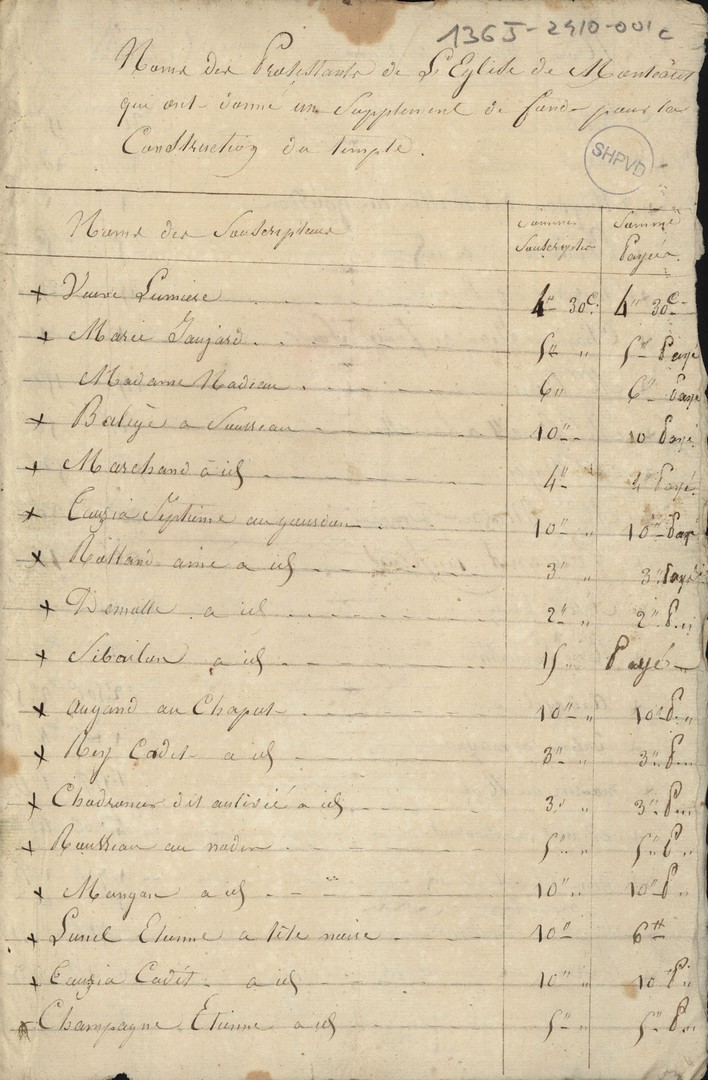 136J-2910-001c
Noms des Protestants de L'Eglise de
qui ont donné un Supplement de fonds pour la
Construction du temple.
SHPVD
Noms des Souscripteurs Sommes Souscriptes Somme Payée.
x Veuve Lumiere 4" 30c. 4" 30c
x Marie Gaujard 5" " 5" Payé
Madame Nadeau 6" 6" Payé
x Balège a 10" 10 Payé
x Marchand à id 4" 4" Payé
x Cauzia Septime au 10" " 10" Payé
x Rolland ainé a id 3" " 3" Payé
x Demolle a id 2" " 2" P...
x Sibailan a id 15 " Payé
x augand au Chaput 10" " 10" P. "
x Rey Cadet a id 3" " 3" P...
x dit à id 3" " 3" P...
x Rousseau au nadin 5" " 5" P "
x Mangan a id 10" " 10" P "
x Lunel Etienne a tête noire 10" 6"
x Cauzia Cadet a id 10" " 10" P. "
x Champagne Etienne a id 5" " 5" P...